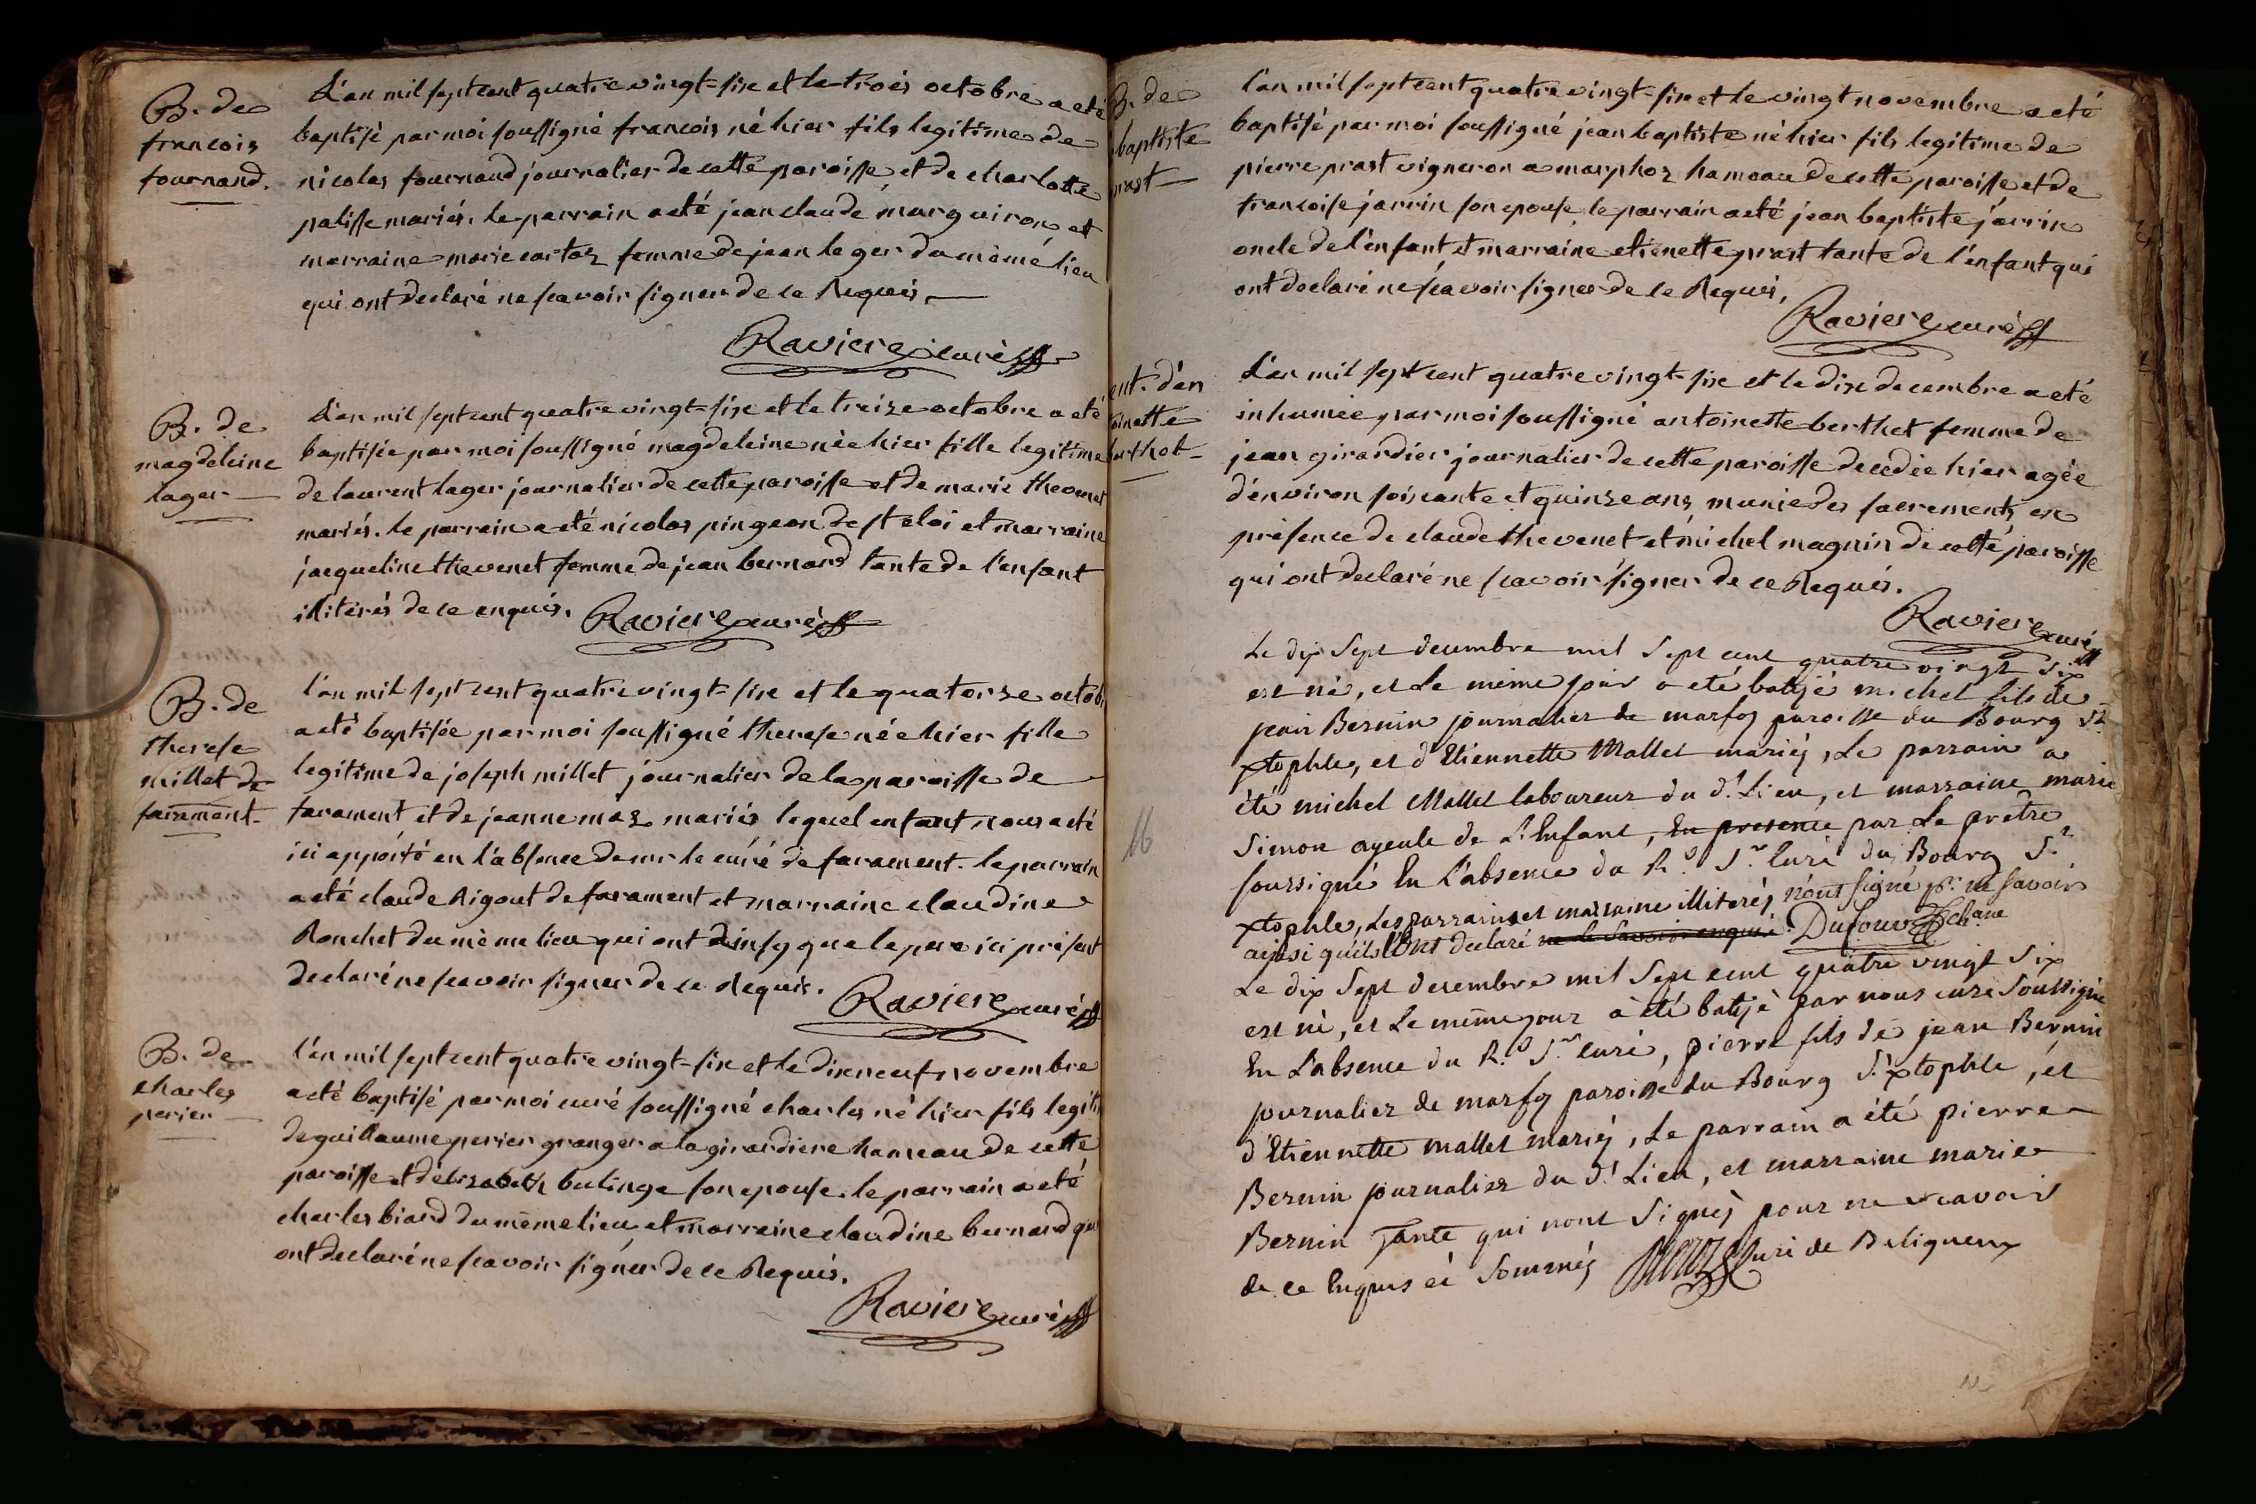 B. de
francois
fournand.
L'an mil sept cent quatre vingt-six et le trois octobre a eté
baptisé par moi soussigné francois né hier fils legitime de
nicolas fournand journalier de cette paroisse et de charlotte
palisse mariés. le parrain a eté jean claude marguiron et
marraine marie cartaz femme de jean leger du même lieu
qui ont declaré ne scavoir signer de ce Requis.
Raviere curé
B. de
magdeleine
lager
L'an mil sept cent quatre vingt-six et le treize octobre a eté
baptisée par moi soussigné magdeleine née hier fille legitime
de laurent lager journalier de cette paroisse et de marie thevenet
mariés. le parrain a eté nicolas pingeon de st eloi et marraine
jacqueline thevenet femme de jean bernard tante de l'enfant
illiterés de ce enquis.
Raviere curé
B. de
therese
millet de
farament.
l'an mil sept cent quatre vingt-six et le quatorze octob
a eté baptisée par moi soussigné therese née hier fille
legitime de joseph millet journalier de la paroisse de
farament et de jeanne maz mariés lequel enfant nous a eté
ici apporté en l'absence de mr le curé de farament. le parrain
a eté claude Rigout de farament et marraine claudine
Ronchet du même lieu qui ont ainsy que le pere ici present
declaré ne scavoir signer de ce Requis.
Raviere curé
B. de
charles
perier
l'an mil sept cent quatre vingt-six et le dixneuf novembre
a eté baptisé par moi curé soussigné charles né hier fils legiti
de guillaume perier granger a la girardiere hameau de cette
paroisse et d'elisabeth bulinge son epouse. le parrain a eté
charles biard du même lieu et marraine claudine bernard qui
ont declaré ne scavoir signer de ce Requis.
Raviere curé
B. de
baptiste
prast
l'an mil sept cent quatre vingt-six et le vingt novembre a eté
baptisé par moi soussigné jean baptiste né hier fils legitime de
pierre prast vigneron a marphoz hameau de cette paroisse et de
francoise jarrin son epouse, le parrain a eté jean baptiste jarrin
oncle de l'enfant et marraine etienette prast tante de l'enfant qui
ont declaré ne scavoir signer de ce Requis,
Raviere curé
ent. d'an
oinette
berthet
L'an mil sept cent quatre vingt-six et le dix decembre a eté
inhumée par moi soussigné antoinette berthet femme de
jean girardier journalier de cette paroisse decedée hier agée
d'environ soixante et quinze ans munie des sacrements en
présence de claude thevenet et michel magnin de cette paroisse
qui ont declaré ne scavoir signer de ce Requis.
Raviere curé
Le dix Sept decembre mil Sept cent quatre vingt Six
est né, et Le même jour a eté batisé michel fils de
jean Bernin journalier de marfoz paroisse du Bourg St
xtophle, et d'Etiennette Mallet mariés, Le parrain a
été michel Mallet laboureur du d.t Lieu, et marraine marie
Simon ayeule de L'Enfant, En presence par Le prêtre
soussigné En L'absence du R.d S.r Curé du Bourg S.t
xtophle, Les parrain et marraine illiterés n'ont signé p.r ne savoir
ainsi qu'ils l'ont declaré ne le savoir enquis. Dufour
16
Le dix Sept decembre mil Sept cent quatre vingt Six
est né, et Le même jour a été batisé par nous curé Soussigné
En L'absence du R.d S.r curé, pierre fils de jean Bernin
journalier de marfoz paroisse du Bourg S.t xtophle, et
d'Etiennette mallet mariés, Le parrain a été pierre
Bernin journalier du d.t Lieu, et marraine marie
Bernin Tante qui n'ont Signés pour ne scavoir
de ce Enquis et Sommés
Curé de Beligneux